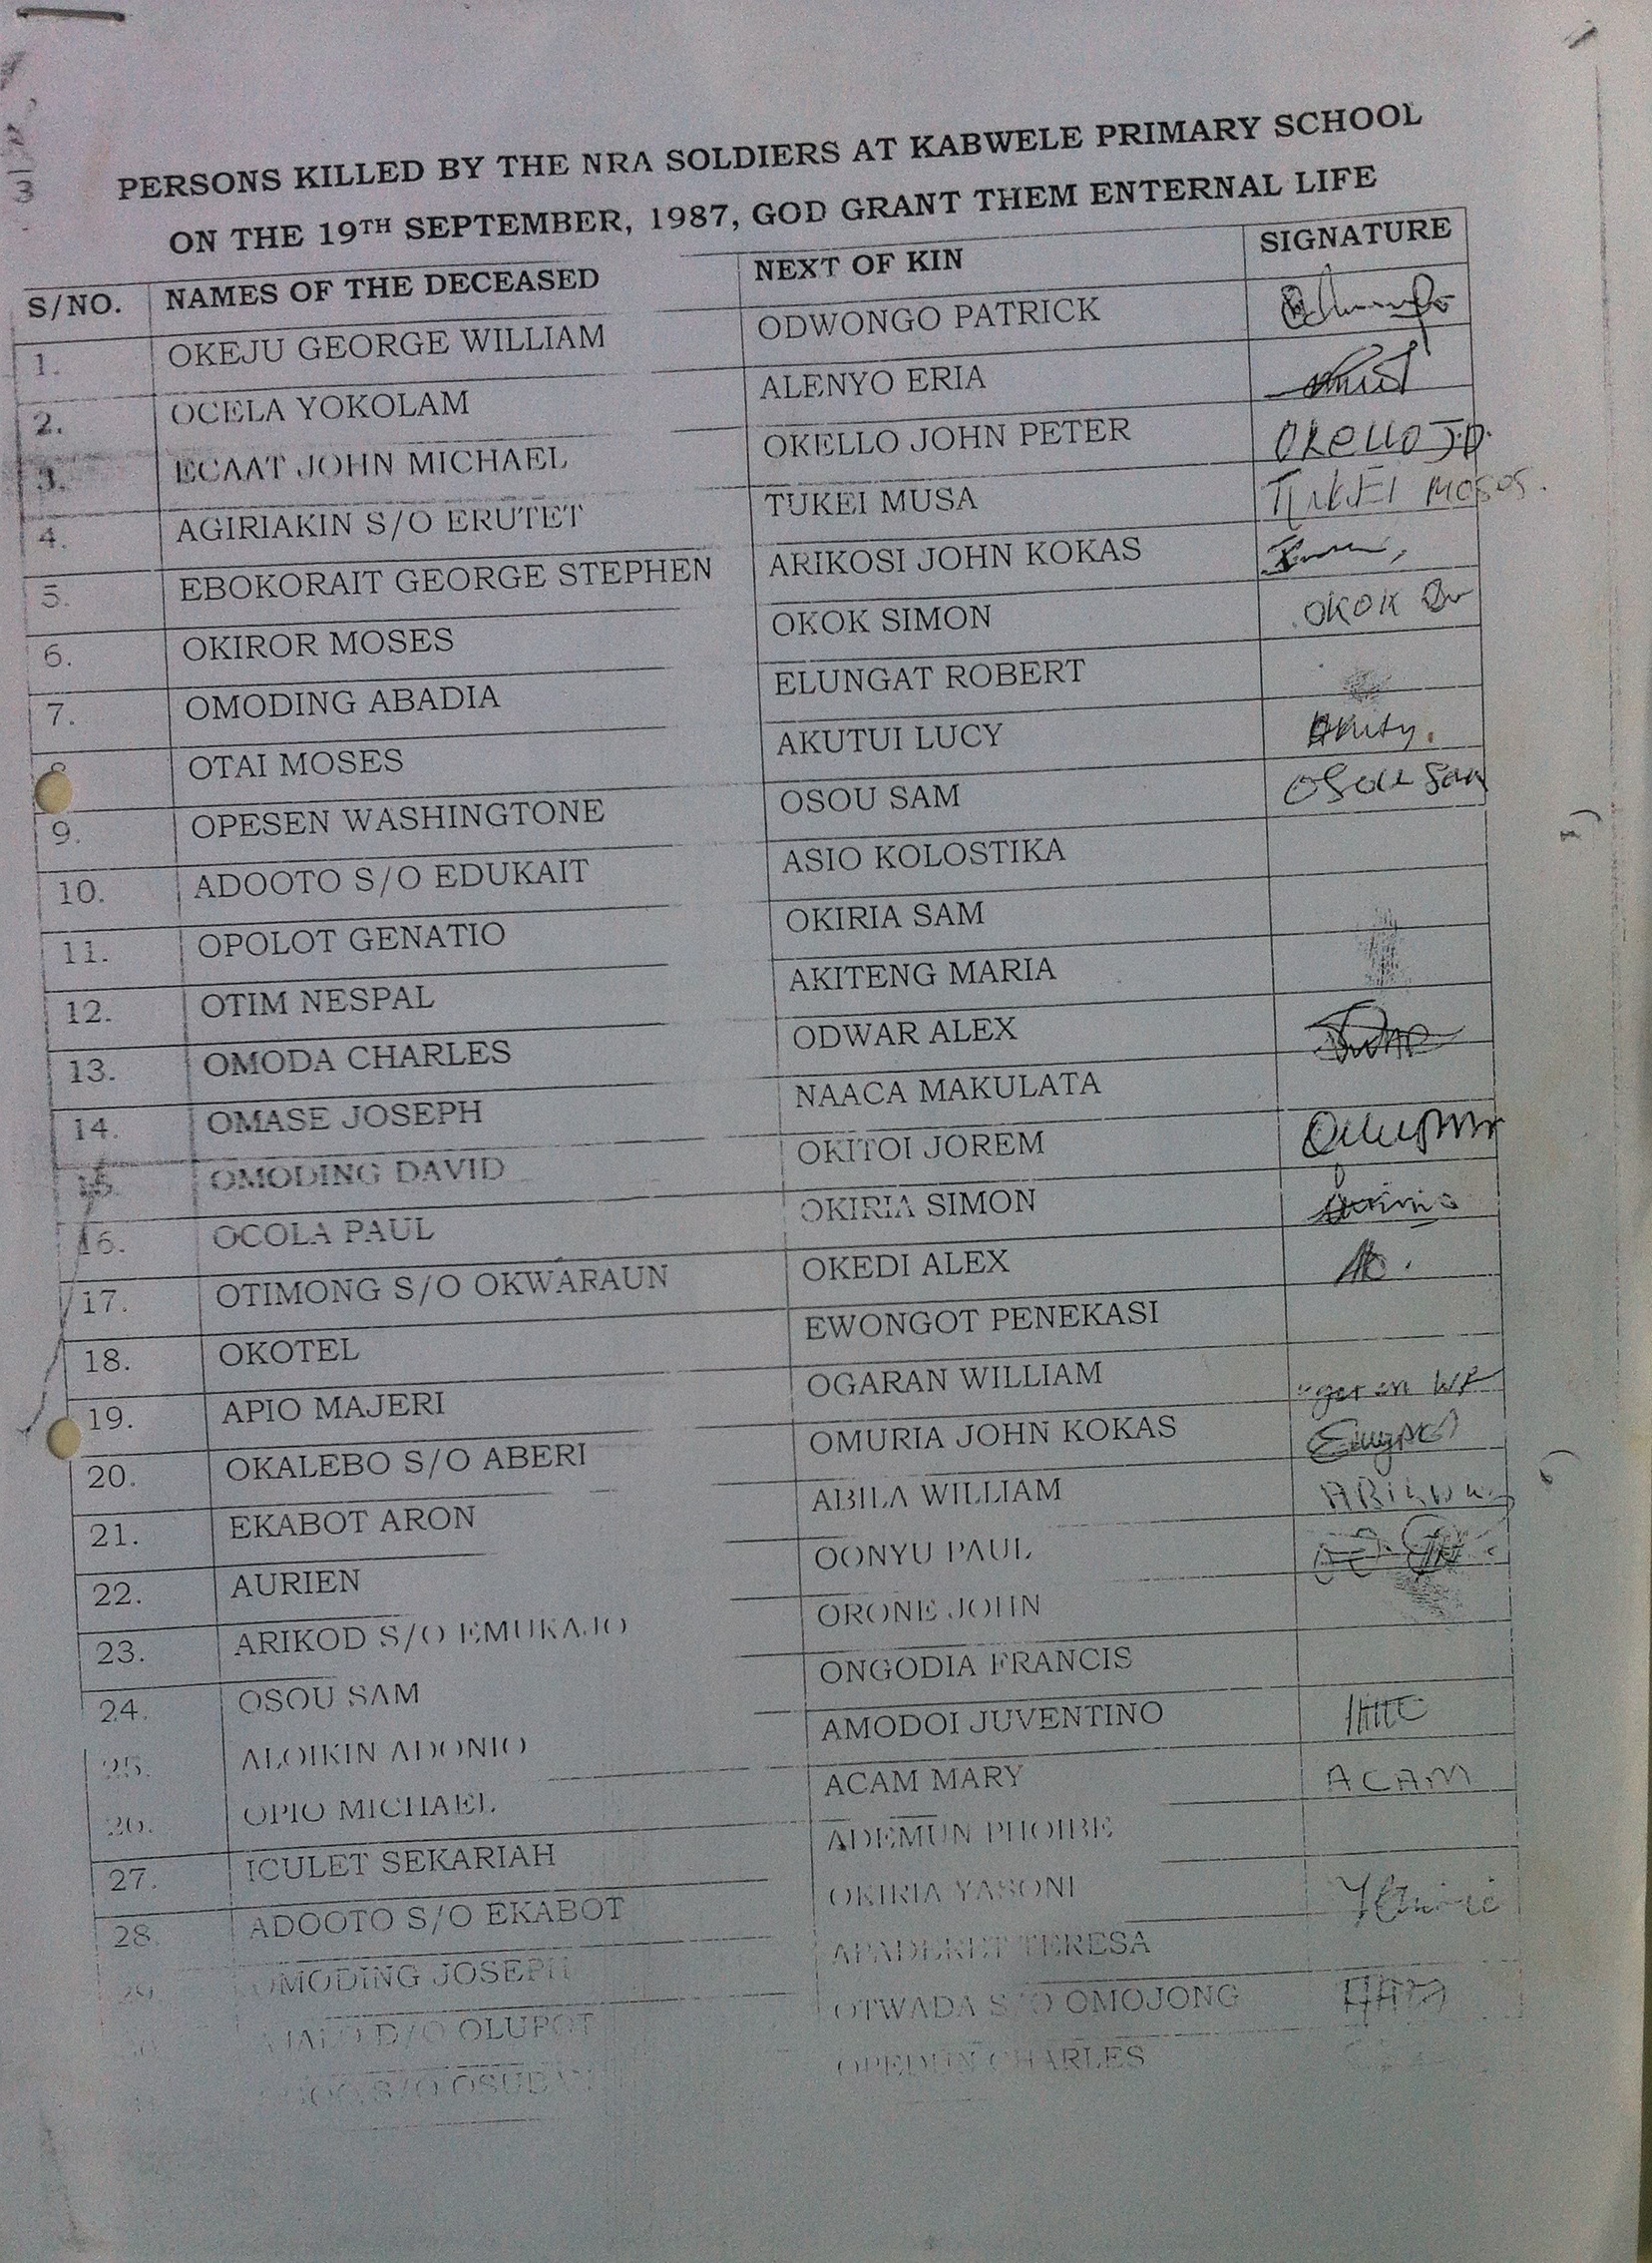 3
PERSONS KILLED BY THE NRA SOLDIERS AT KABWELE PRIMARY SCHOOL
ON THE 19TH SEPTEMBER, 1987, GOD GRANT THEM ENTERNAL LIFE
S/NO. NAMES OF THE DECEASED NEXT OF KIN SIGNATURE
1. OKEJU GEORGE WILLIAM ODWONGO PATRICK
2. OCELA YOKOLAM ALENYO ERIA
3. ECAAT JOHN MICHAEL OKELLO JOHN PETER OKELLO J.P.
4. AGIRIAKIN S/O ERUTET TUKEI MUSA TUKEI MOSOS.
5. EBOKORAIT GEORGE STEPHEN ARIKOSI JOHN KOKAS
6. OKIROR MOSES OKOK SIMON OKOK
7. OMODING ABADIA ELUNGAT ROBERT
OTAI MOSES AKUTUI LUCY
9. OPESEN WASHINGTONE OSOU SAM OSOU Sam
10. ADOOTO S/O EDUKAIT ASIO KOLOSTIKA
11. OPOLOT GENATIO OKIRIA SAM
12. OTIM NESPAL AKITENG MARIA
13. OMODA CHARLES ODWAR ALEX
14. OMASE JOSEPH NAACA MAKULATA
15. OMODING DAVID OKITOI JOREM
16. OCOLA PAUL OKIRIA SIMON
17. OTIMONG S/O OKWARAUN OKEDI ALEX
18. OKOTEL EWONGOT PENEKASI
19. APIO MAJERI OGARAN WILLIAM
20. OKALEBO S/O ABERI OMURIA JOHN KOKAS
21. EKABOT ARON ABILA WILLIAM
22. AURIEN OONYU PAUL
23. ARIKOD S/O EMUKAJO ORONE JOHN
24. OSOU SAM ONGODIA FRANCIS
25. ALOIKIN ADONIO AMODOI JUVENTINO
26. OPIO MICHAEL ACAM MARY ACAM
27. ICULET SEKARIAH ADEMUN PHOIBE
28. ADOOTO S/O EKABOT OKIRIA YASONI
29. OMODING JOSEPH APADERET TERESA
D/O OLUPOT OTWADA S/O OMOJONG
S/O OPEDUN CHARLES